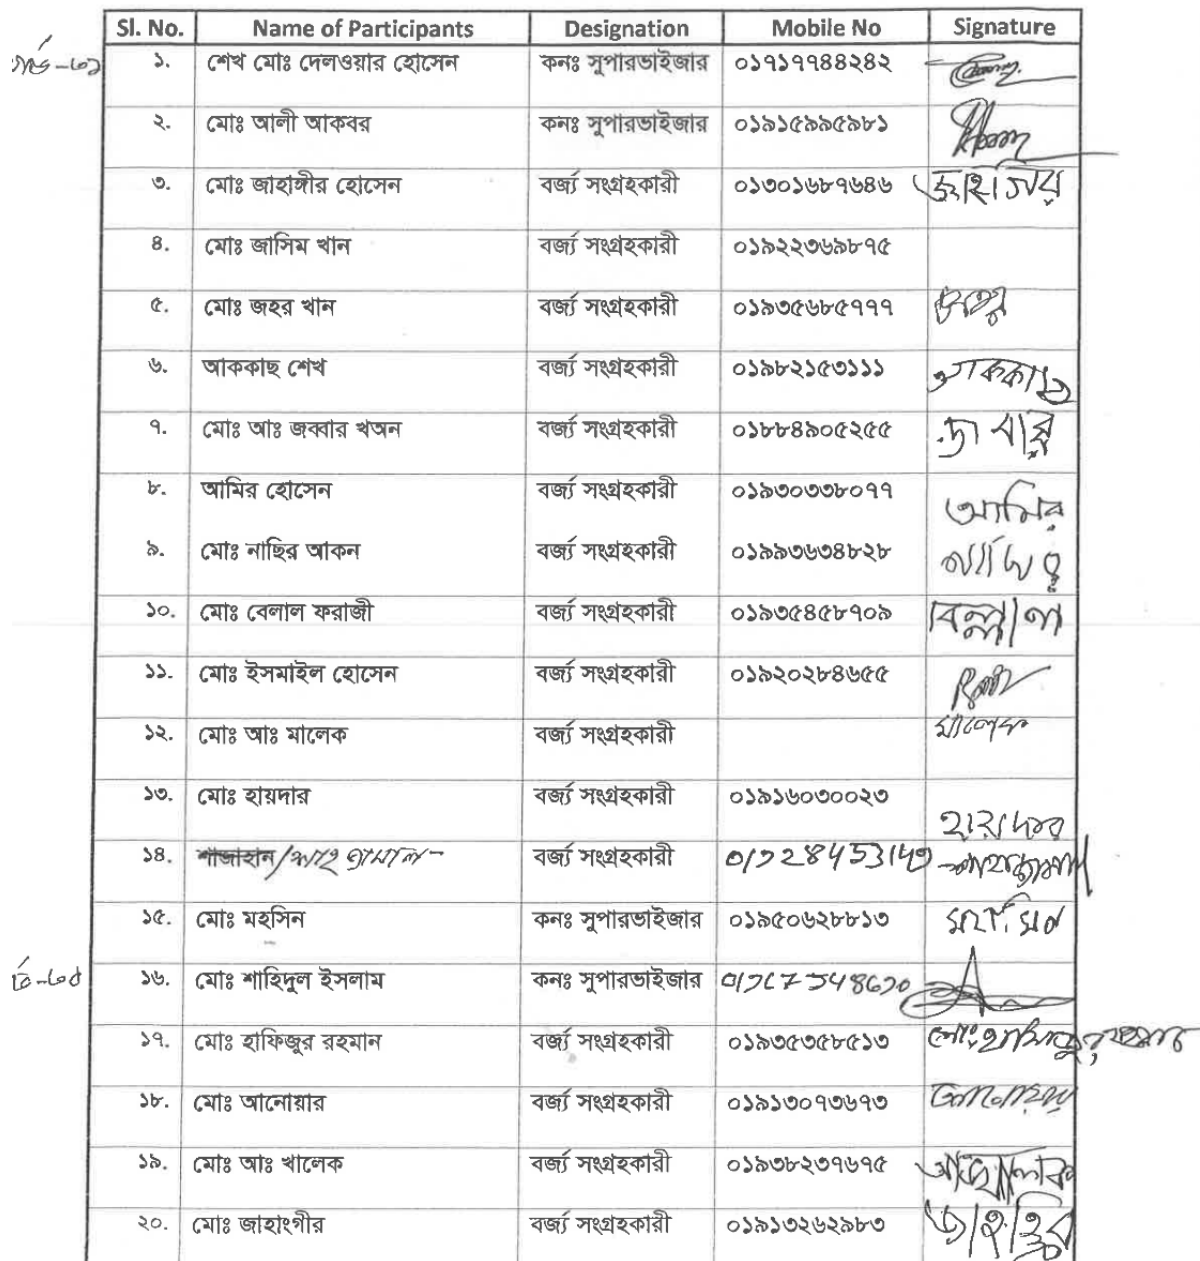 Sl. No. Name of Participants Designation Mobile No Signature
১. শেখ মোঃ দেলওয়ার হোসেন কনঃ সুপারভাইজার ০১৭১৭৭৪৪২৪২
২. মোঃ আলী আকবর কনঃ সুপারভাইজার ০১৯১৫৯৯৫৯৮১
৩. মোঃ জাহাঙ্গীর হোসেন বর্জ্য সংগ্রহকারী ০১৩০১৬৮৭৬৪৬
৪. মোঃ জাসিম খান বর্জ্য সংগ্রহকারী ০১৯২২৩৬৯৮৭৫
৫. মোঃ জহর খান বর্জ্য সংগ্রহকারী ০১৯৩৫৬৮৫৭৭৭ জহর
৬. আককাছ শেখ বর্জ্য সংগ্রহকারী ০১৯৮২১৫৩১১১ আককাছ
৭. মোঃ আঃ জব্বার খঅন বর্জ্য সংগ্রহকারী ০১৮৮৪৯০৫২৫৫ জবার
৮. আমির হোসেন বর্জ্য সংগ্রহকারী ০১৯৩০৩৩৮০৭৭ আমির
৯. মোঃ নাছির আকন বর্জ্য সংগ্রহকারী ০১৯৯৩৬৩৪৮২৮
১০. মোঃ বেলাল ফরাজী বর্জ্য সংগ্রহকারী ০১৯৩৫৪৫৮৭০৯ বিল্লাল
১১. মোঃ ইসমাইল হোসেন বর্জ্য সংগ্রহকারী ০১৯২০২৮৪৬৫৫
১২. মোঃ আঃ মালেক বর্জ্য সংগ্রহকারী মালেক
১৩. মোঃ হায়দার বর্জ্য সংগ্রহকারী ০১৯১৬০৩০০২৩ হায়দার
১৪. শাজাহান/শাহ জামাল বর্জ্য সংগ্রহকারী শাহজামাল
১৫. মোঃ মহসিন কনঃ সুপারভাইজার ০১৯৫০৬২৮৮১৩ মহসিন
১৬. মোঃ শাহিদুল ইসলাম কনঃ সুপারভাইজার
১৭. মোঃ হাফিজুর রহমান বর্জ্য সংগ্রহকারী ০১৯৩৫৩৫৮৫১৩ মোঃ হাফিজুর রহমান
১৮. মোঃ আনোয়ার বর্জ্য সংগ্রহকারী ০১৯১৩০৭৩৬৭৩ আনোয়ার
১৯. মোঃ আঃ খালেক বর্জ্য সংগ্রহকারী ০১৯৩৮২৩৭৬৭৫
২০. মোঃ জাহাংগীর বর্জ্য সংগ্রহকারী ০১৯১৩২৬২৯৮৩